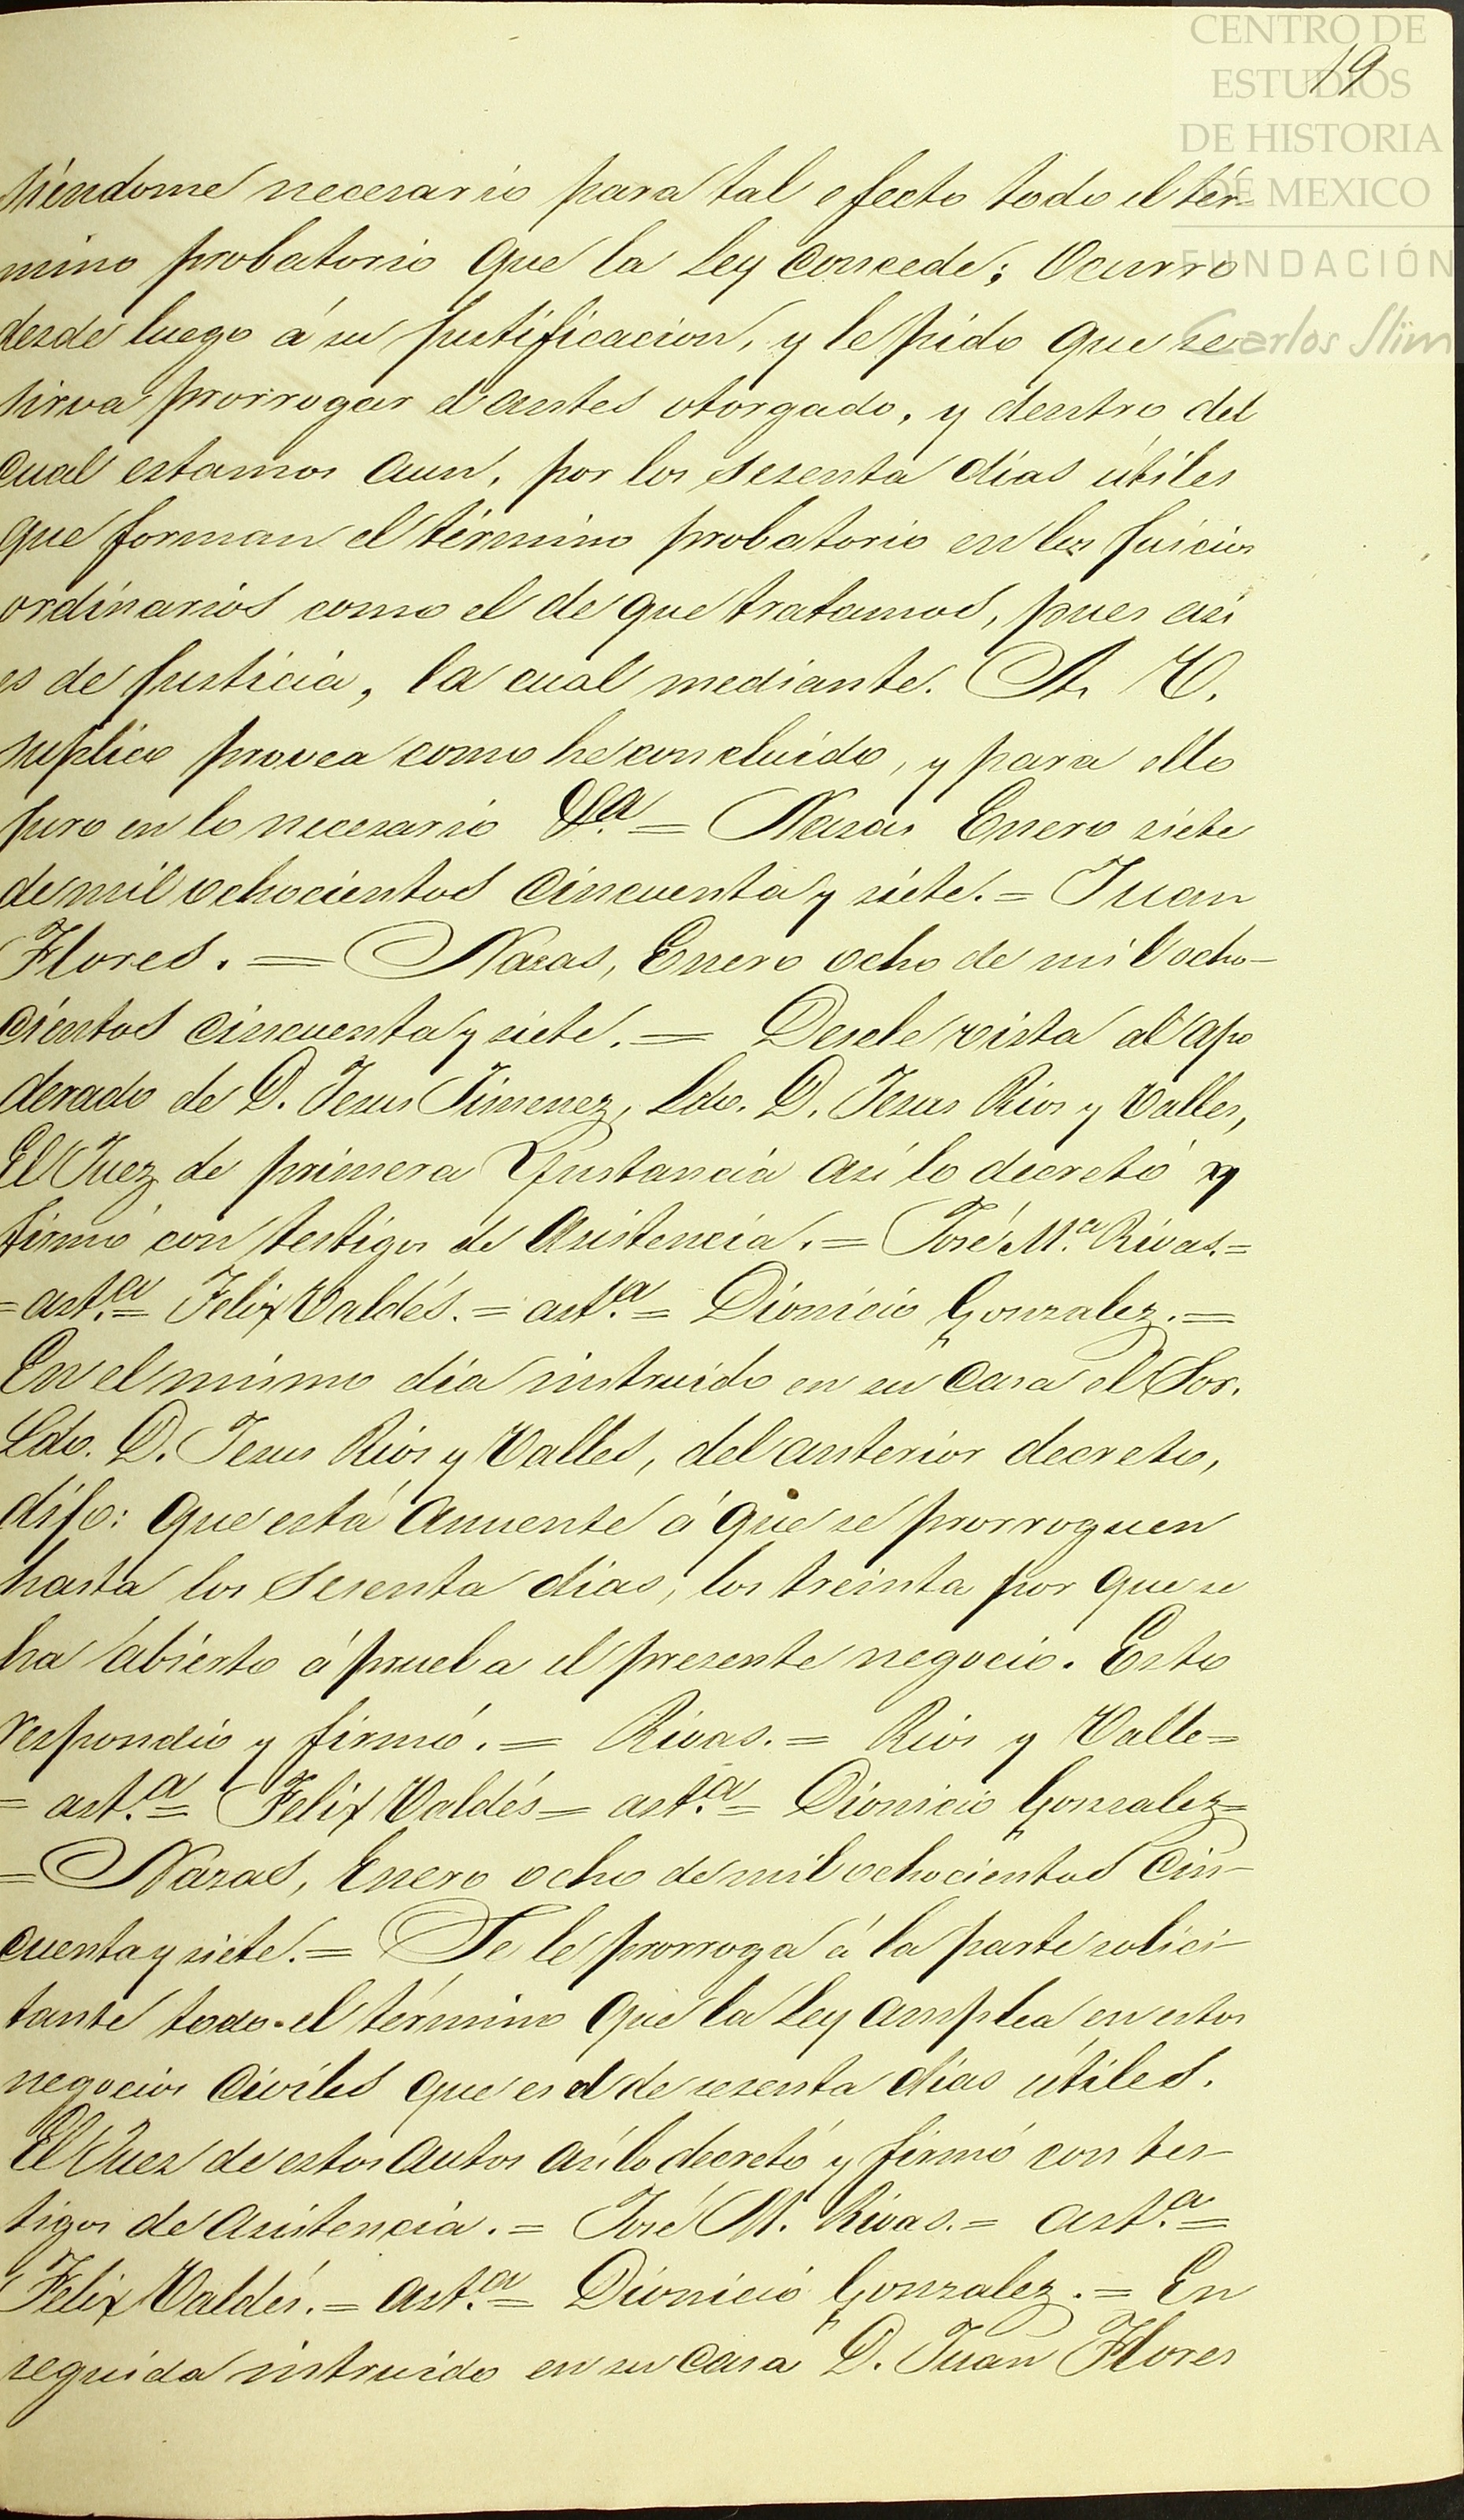 CENTRO DE
ESTUDIOS
DE HISTORIA
DE MEXICO
FUNDACIÓN
Carlos Slim
19
siéndome necesario para tal efecto todo el tér-
mino probatorio que la Ley concede; Ocurro
desde luego á su justificacion, y le pido que se
sirva prorrogar el antes otorgado, y dentro del
cual estamos aun, por los sesenta dias útiles
que forman el término probatorio en los juicios
ordinarios como el de que tratamos, pues asi
es de justicia, la cual mediante. A. V.
suplico provea como he concluido, y para ello
juro en lo necesario &a = Nazas Enero siete
de mil ochocientos cincuenta y siete. = Juan
Flores. = Nazas, Enero ocho de mil ocho-
cientos cincuenta y siete. = Desele vista al apo
derado de D. Jesus Jimenez, Ldo. D. Jesus Rios y Valles,
El Juez de primera Ynstancia asi lo decretó y
firmó con testigos de asistencia. = José M.a Rivas. =
= ast.a = Felix Valdés. = ast.a = Dionicio Gonzalez. =
En el mismo dia instruido en su casa el Sor.
Ldo. D. Jesus Rios y Valles, del anterior decreto,
dijo: que está anuente á que se prorroguen
hasta los sesenta dias, los treinta por que se
ha abierto á prueba el presente negocio. Esto
respondió y firmó. = Rivas. = Rios y Valle =
= ast.a = Felix Valdés = ast.a = Dionicio Gonzalez =
= Nazas, Enero ocho de mil ochocientos cin-
cuenta y siete. = Se le prorroga á la parte solici-
tante todo el término que la Ley amplea en estos
negocios civiles que es el de sesenta dias útiles.
El Juez de estos autos asi lo decretó y firmó con tes-
tigos de asistencia. = José M. Rivas. = ast.a =
Felix Valdés. = ast.a = Dionicio Gonzalez. = En
seguida intruido en su casa D. Juan Flores